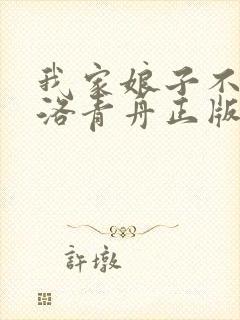 我家娘子不
洛青丹正版
許墩